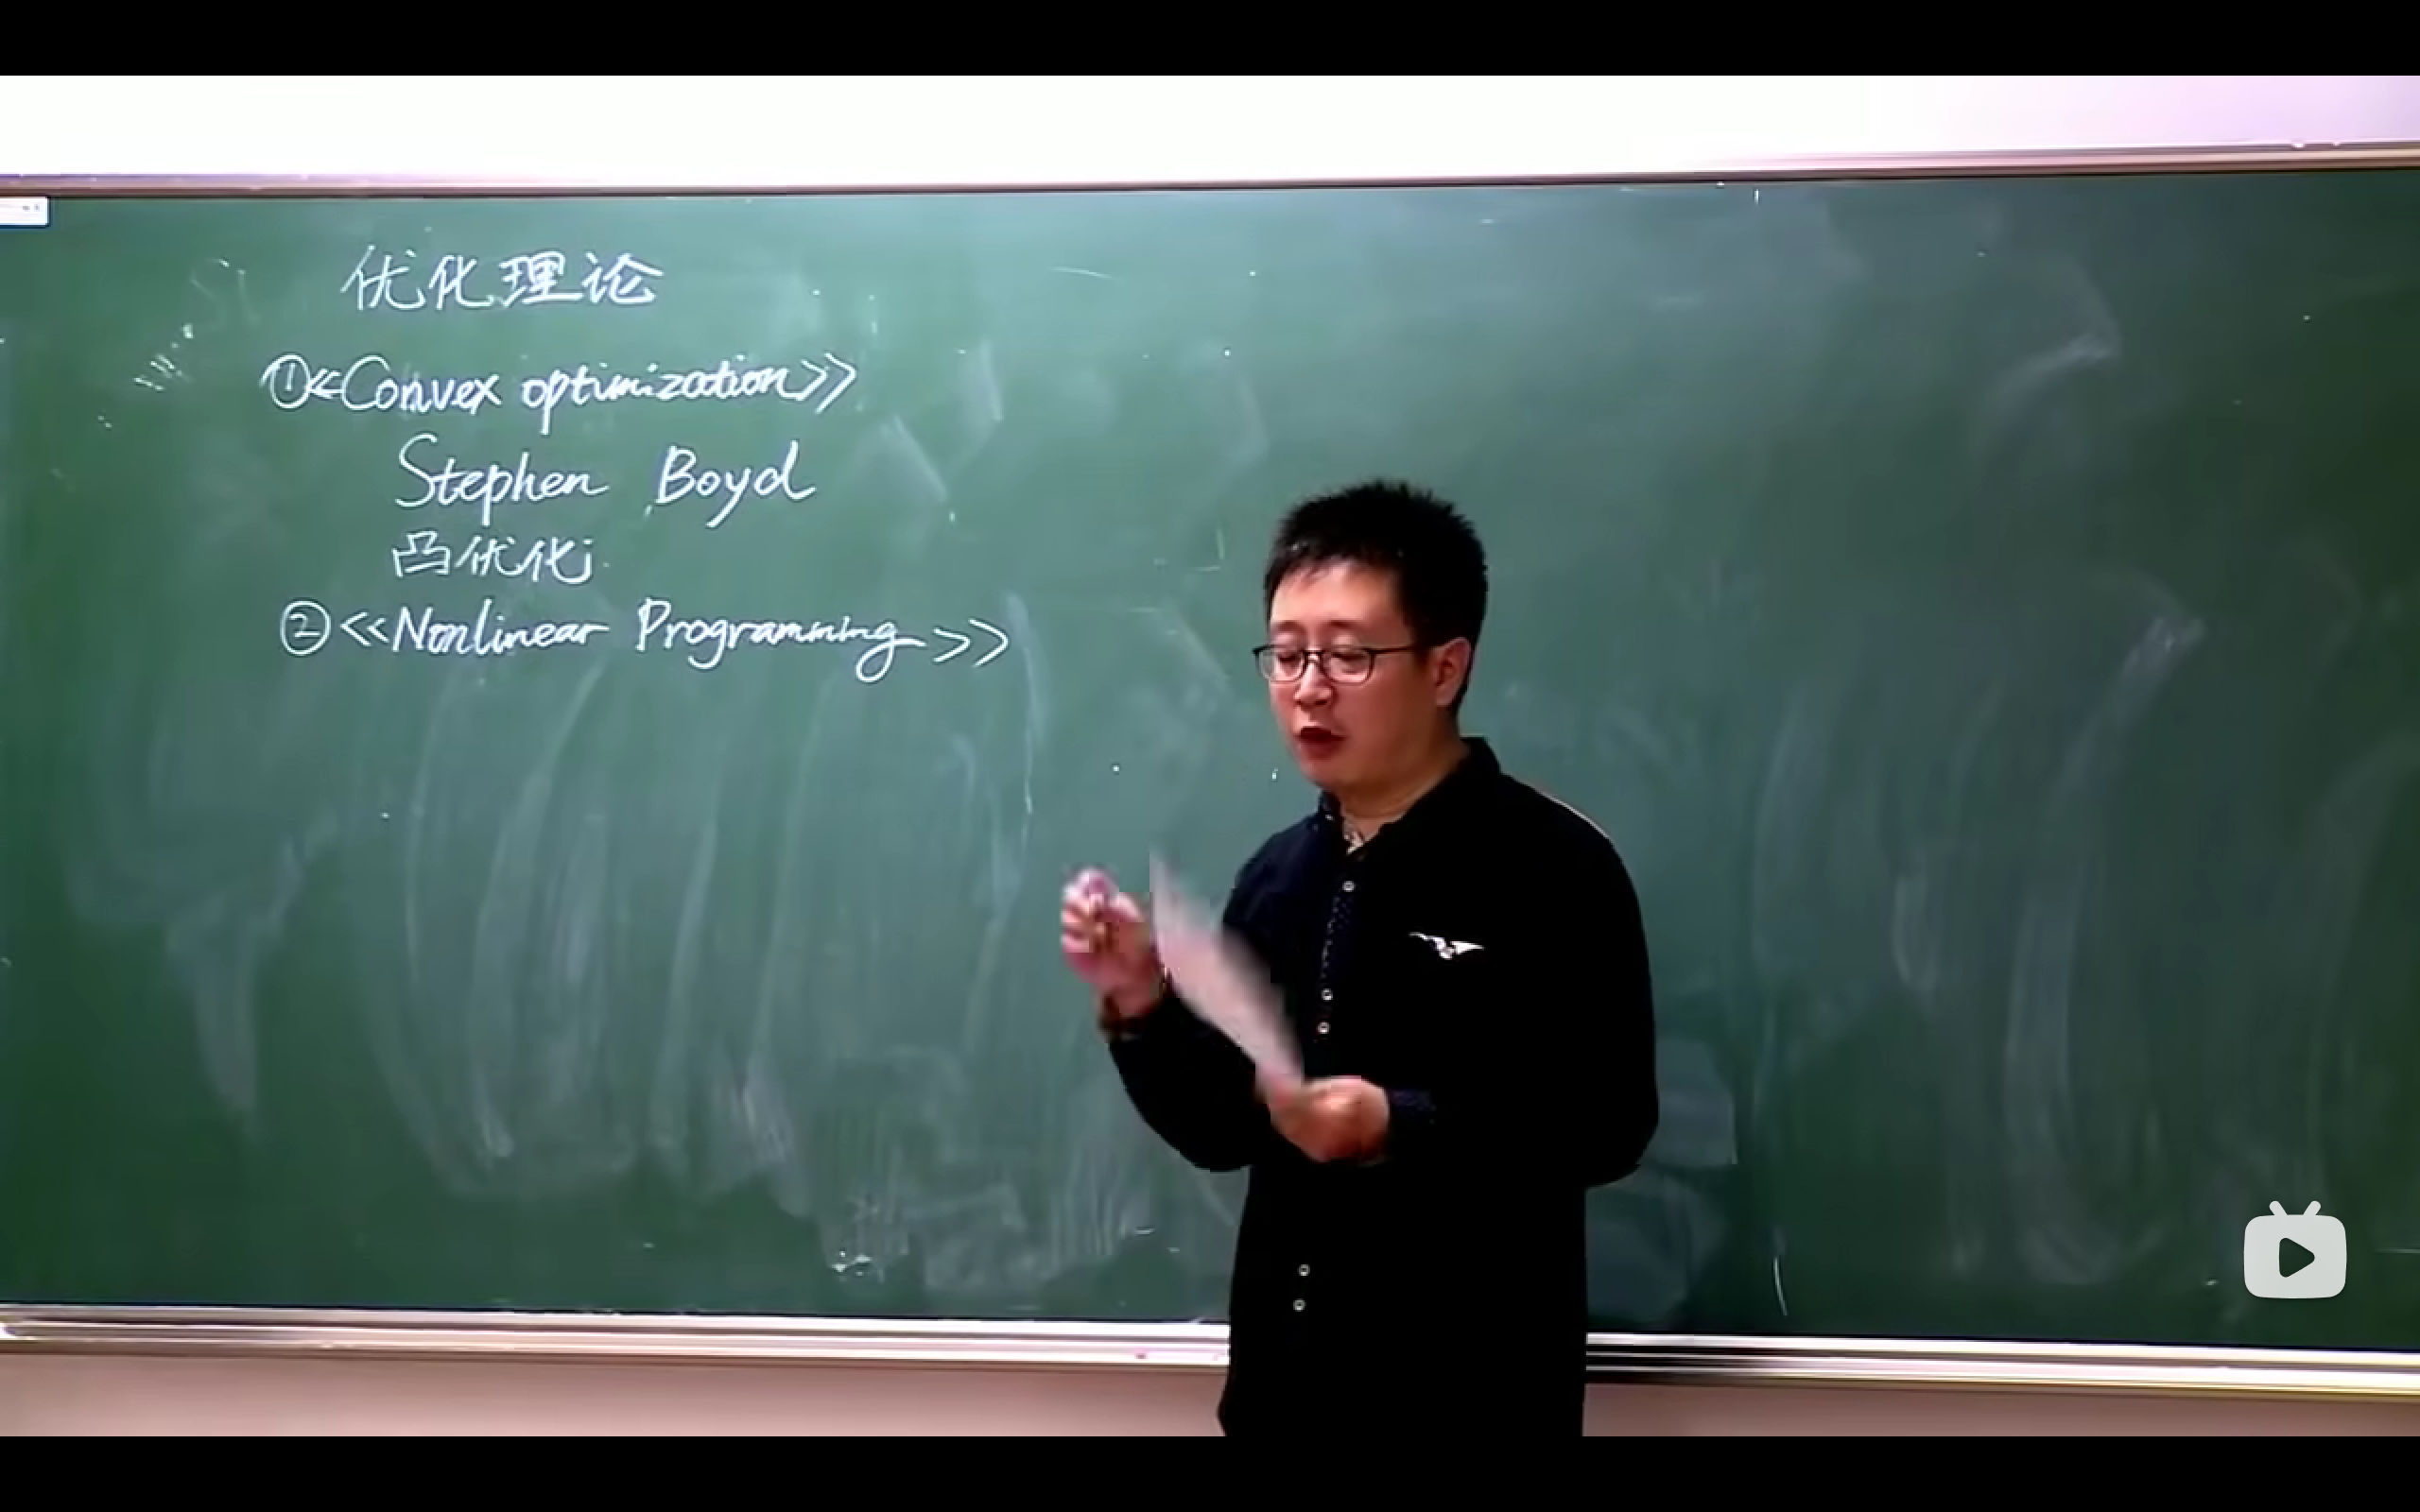 优化理论
①<<Convex optimization>>
Stephen Boyd
凸优化
②<<Nonlinear Programming>>